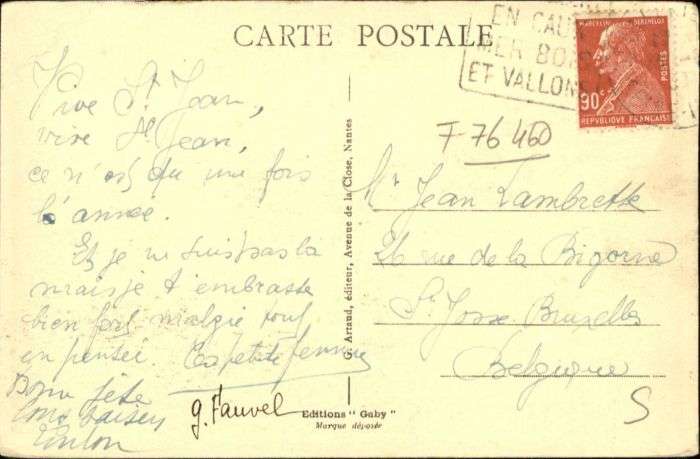 CARTE POSTALE
EN CAUX
MER BO
ET VALLON
MARCELLIN BERTHELOT
POSTES
90c
REPUBLIQUE FRANÇAISE
F 76 460
Vive St Jean,
vive St Jean,
ce n'est qu'une fois
l'année.
Et je ne suis pas la
mais je t'embrasse
bien fort malgré tout
en pensée. Ta petite femme
Bonne fête
baisers
g. Fauvel
G. Artaud, éditeur, Avenue de la Close, Nantes
Editions "Gaby"
Marque déposée
Mr Jean Lambrette
26 rue de la Bigorne
St Josse Bruxelles
Belgique
S